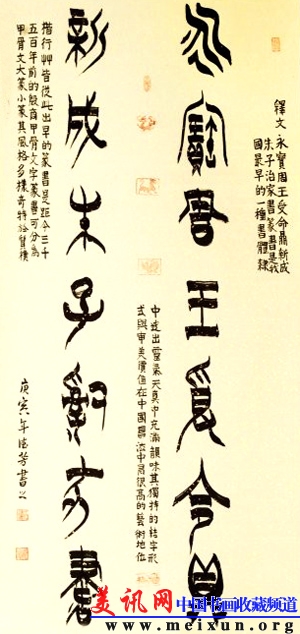 釋文永寶周王受命鼎新成
朱子治家書篆書是我
國最早的一種書體隸
永寶周王受命鼎
楷行艸皆從此出早的篆書是距今三千
五百年前的殷商甲骨文字篆書可分為
甲骨文大篆小篆其風格多樣奇特於質樸
中透出靈氣天真中充滿韻味其獨特的結字形
式與審美價值在中國書法中居很高的藝術地位
新成朱子治家書
庚寅年德芳書之
美讯网
中国书画收藏频道
www.meixun.org